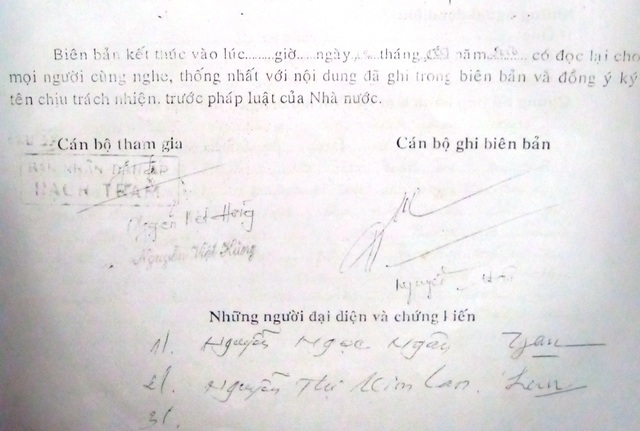 Biên bản kết thúc vào lúc........giờ....ngày......tháng......năm......... có đọc lại cho
mọi người cùng nghe, thống nhất với nội dung đã ghi trong biên bản và đồng ý ký
tên chịu trách nhiện. trước pháp luật của Nhà nước.
Cán bộ tham gia Cán bộ ghi biên bản
BẠCH TRẦM
Nguyễn Việt Hùng
Nguyễn Việt Hùng
Nguyễn
Những người đại diện và chứng kiến
1/. Nguyễn Ngọc Ngân
2/. Nguyễn Thị Kim Lan. Lan
3/.